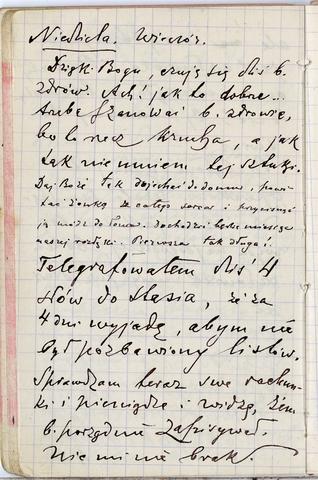 Niedziela. Wieczór.
Dzięki Bogu, czuję się dziś b.
zdrów. Ach! jak to dobrze...
trzeba szanować b. zdrowie,
bo to rzecz krucha, a jak
tak nie umiem tej sztuki.
Daj Boże tak dojechać do domu, powi-
tać żonkę ze całego serca i przycisnąć
ją do łona. Dochodzi będzie miesiąc
naszej rozłąki. Pierwsza tak długa!
Telegrafowałem dziś 4
słów do Stasia, że za
4 dni wyjadę, abym nie
był pozbawiony listów.
Sprawdzam teraz swe rachun-
ki i pieniądze i widzę, żem
b. porządnie
Nic mi nie brak.